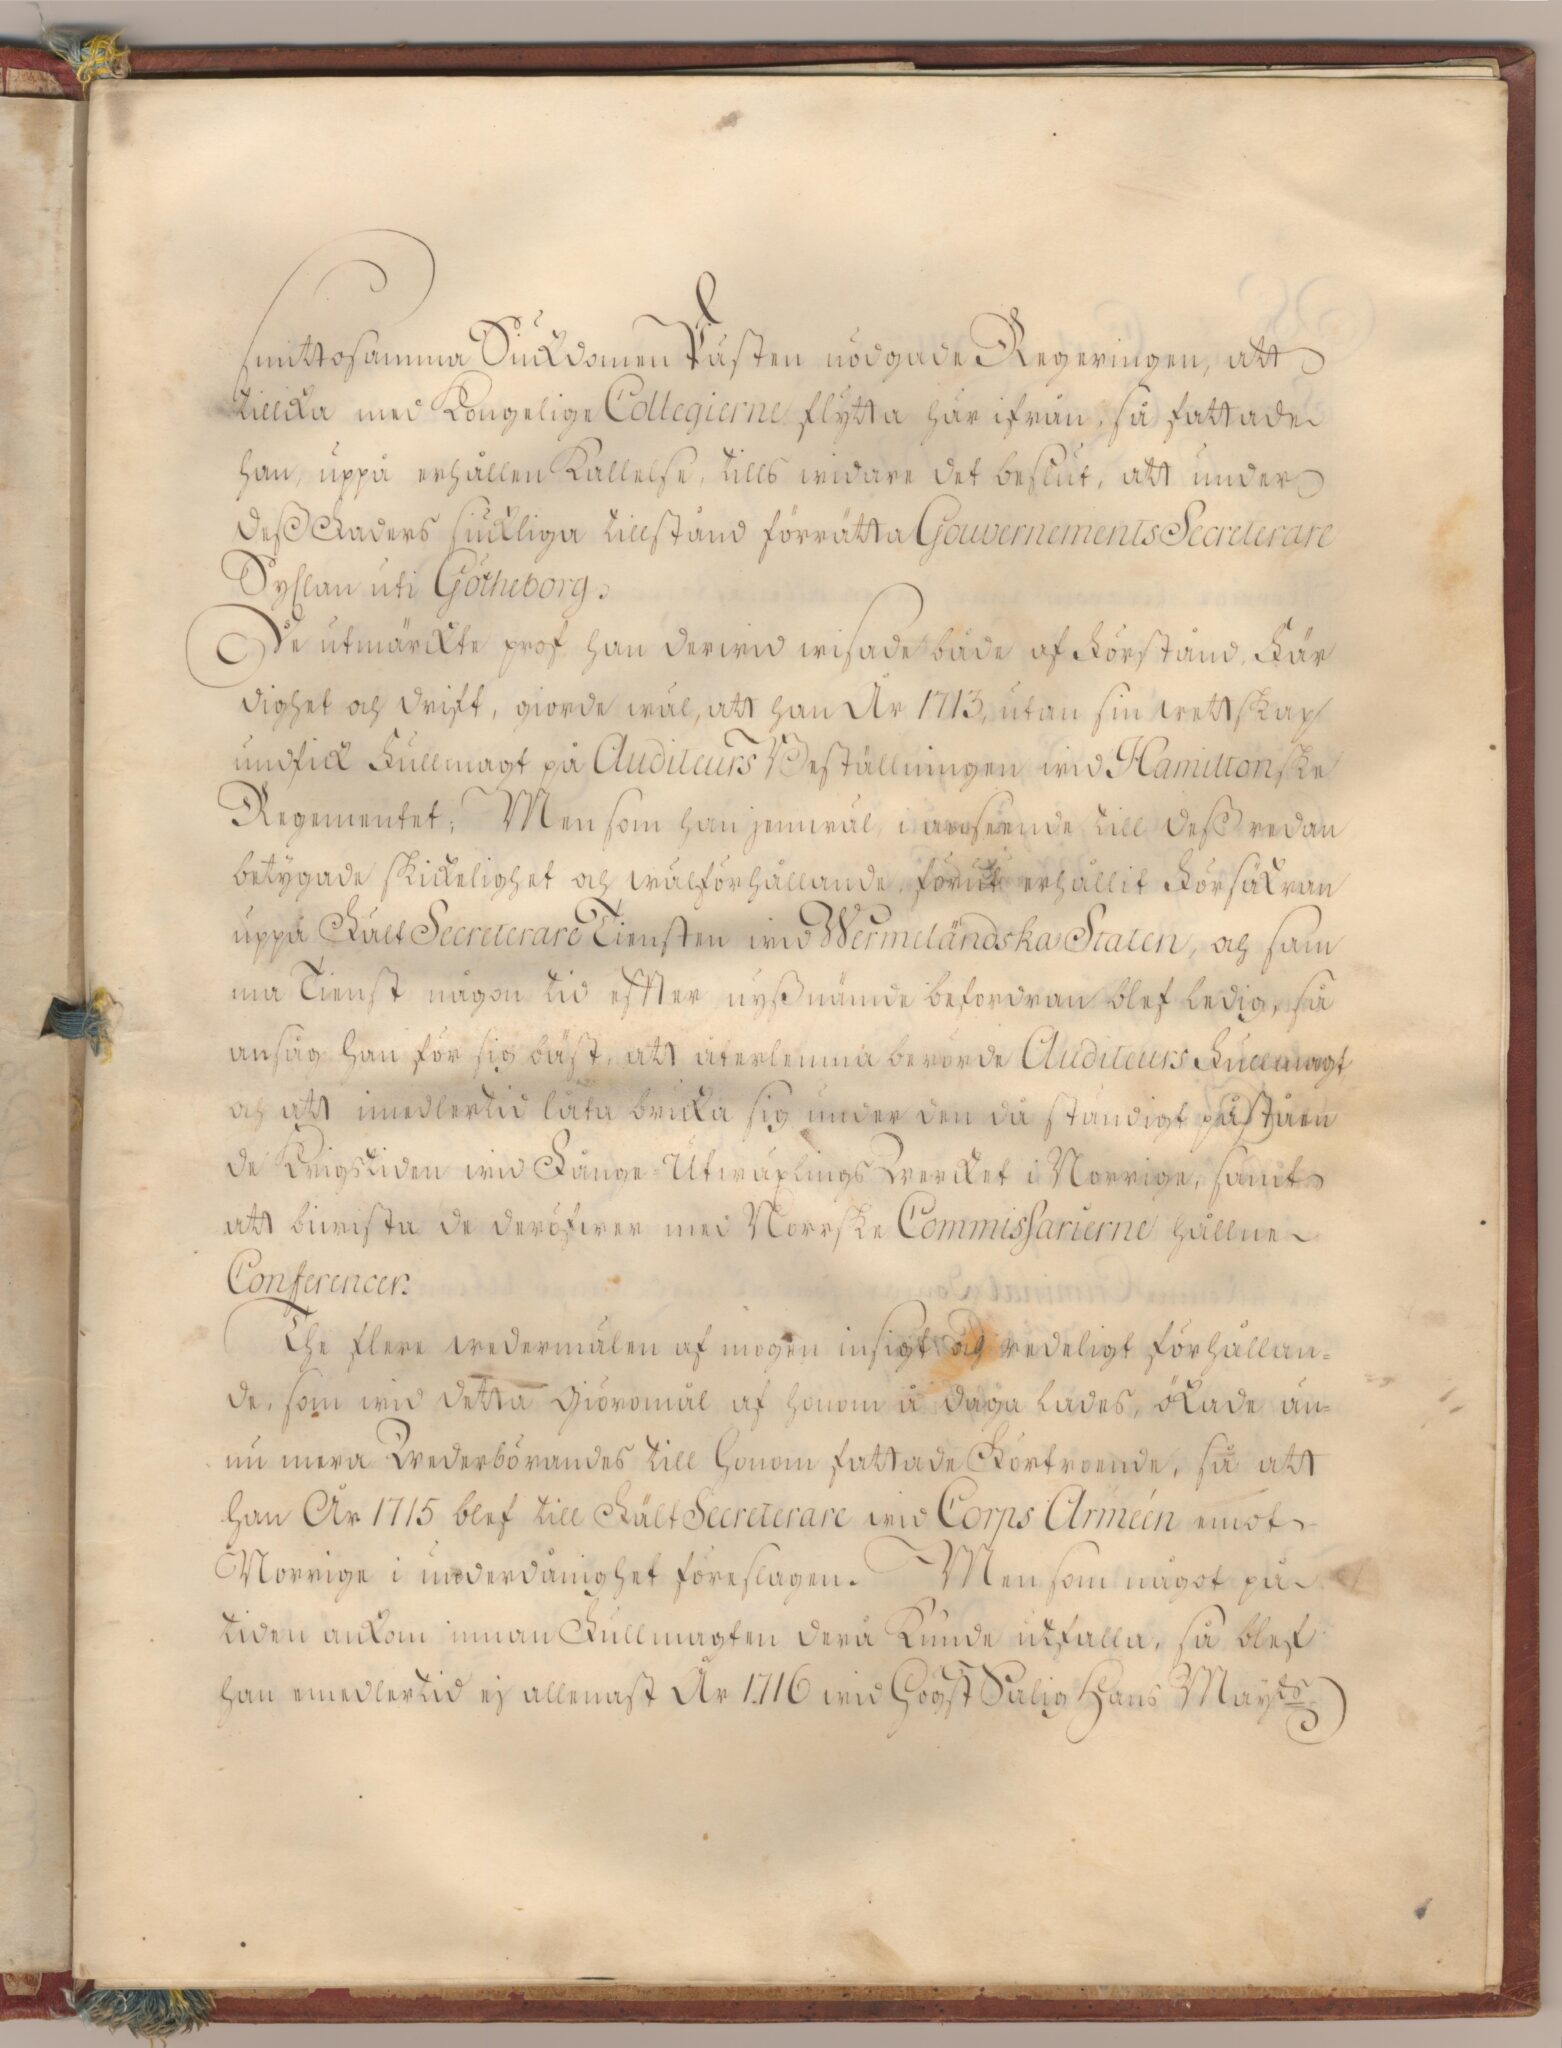 smittosamma Siukdomen Pästen nödgade Regeringen, att
tillika med Kongelige Collegierne flytta här ifrån, så fattade
han, uppå erhållen Kallelse, tills widare det beslut, att under
deß Faders siukliga tillstånd förrätta Gouvernements Secreterare
Syßlan uti Götheborg.
De utmärckte prof han derwid wisade både af Förstånd, Fär
dighet och drift, giorde wäl, att han År 1713, utan sin wettskap
undfick Fullmagt på Auditeurs Beställningen wid Hamiltonske
Regementet; Men som han jemwäl, i anseende till deß redan
betygade skickelighet och wälförhållande, förut erhållit Försäkran
uppå Fält Secreterare Tiensten wid Wermeländska Staten, och sam
ma Tienst någon tid effter nyßnämde befordran blef ledig, så
ansåg han för sig bäst, att återlemna berörde Auditeurs Fullmagt
och att imedlertid låta bruka sig under den då ständigt påståen
de Krigstiden wid Fånge-Utwäxlings Wercket i Norrige, samt
att biwista de deröfwer med Norrske Commissarierne hållne
Conferencer.
The flere wedermälen af mogen insigt och redeligt förhållan=
de, som wid detta Giöromål af honom å daga lades, ökade än=
nu mera Wederbörandes till Honom fattade Förtroende, så att
han År 1715 blef till Fält Secreterare wid Corps Arméen emot
Norrige i underdånighet föreslagen. Men som något på
tiden ankom innan Fullmagten derå kunde utfalla, så blef
han emedlertid ej allenast År 1716 wid Högst Salig Hans May:ts